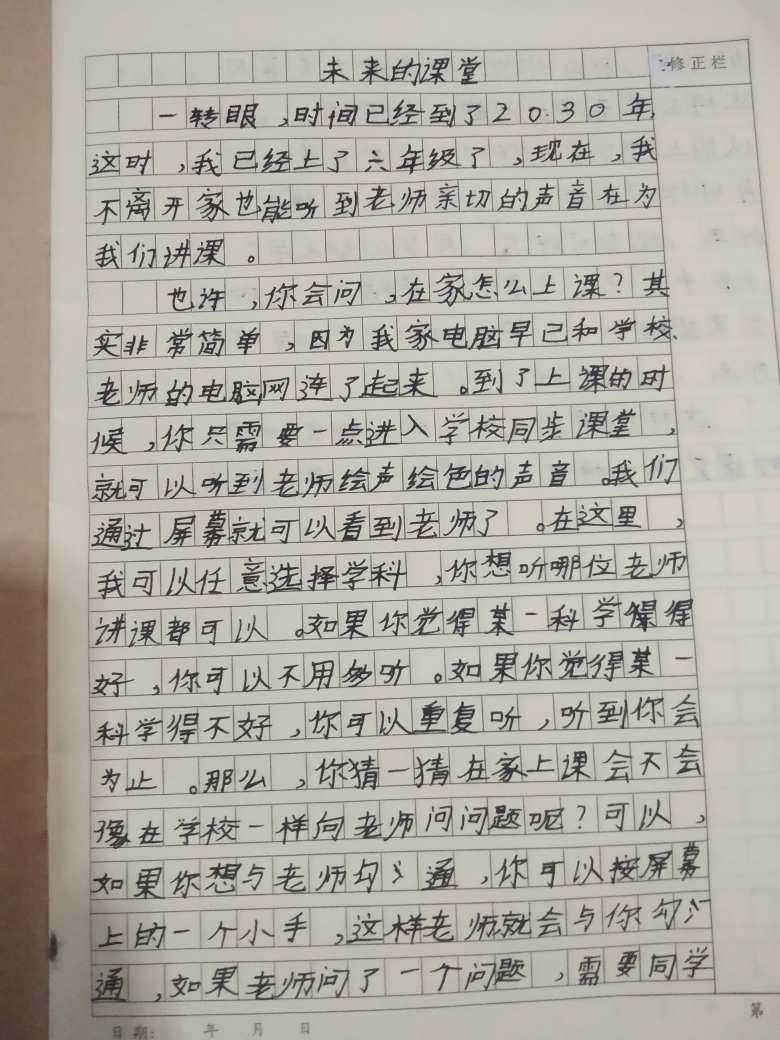 未来的课堂
修正栏
一转眼，时间已经到了2030年，
这时，我已经上了六年级了，现在，我
不离开家也能听到老师亲切的声音在为
我们讲课。
也许，你会问，在家怎么上课？其
实非常简单，因为我家电脑早已和学校
老师的电脑网连了起来。到了上课的时
候，你只需要一点进入学校同步课堂，
就可以听到老师绘声绘色的声音。我们
通过屏幕就可以看到老师了。在这里，
我可以任意选择学科，你想听哪位老师
讲课都可以。如果你觉得某一科学得
好，你可以不用听。如果你觉得某一
科学得不好，你可以重复听，听到你会
为止。那么，你猜一猜在家上课会不会
像在学校一样向老师问问题呢？可以，
如果你想与老师勾通，你可以按屏幕
上的一个小手，这样老师就会与你勾
通，如果老师问了一个问题，需要同学
第
日期： 年 月 日